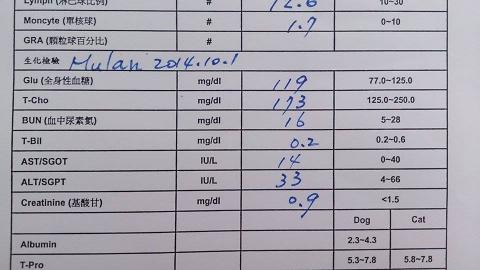 Lymph (淋巴球比例) # 12.6 10~30
Moncyte (單核球) # 1.7 0~10
GRA (顆粒球百分比) #
生化檢驗 Mulan 2014.10.1
Glu (全身性血糖) mg/dl 119 77.0~125.0
T-Cho mg/dl 173 125.0~250.0
BUN (血中尿素氮) mg/dl 16 5~28
T-Bil mg/dl 0.2 0.2~0.6
AST/SGOT IU/L 14 0~40
ALT/SGPT IU/L 33 4~66
Creatinine (基酸甘) mg/dl 0.9 <1.5
Dog Cat
Albumin 2.3~4.3
T-Pro 5.3~7.8 5.8~7.8